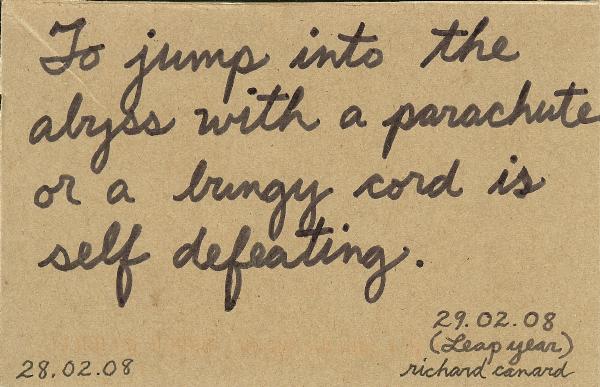 To jump into the
abyss with a parachute
or a bungy cord is
self defeating.
29.02.08
(Leap year)
28.02.08
richard canard